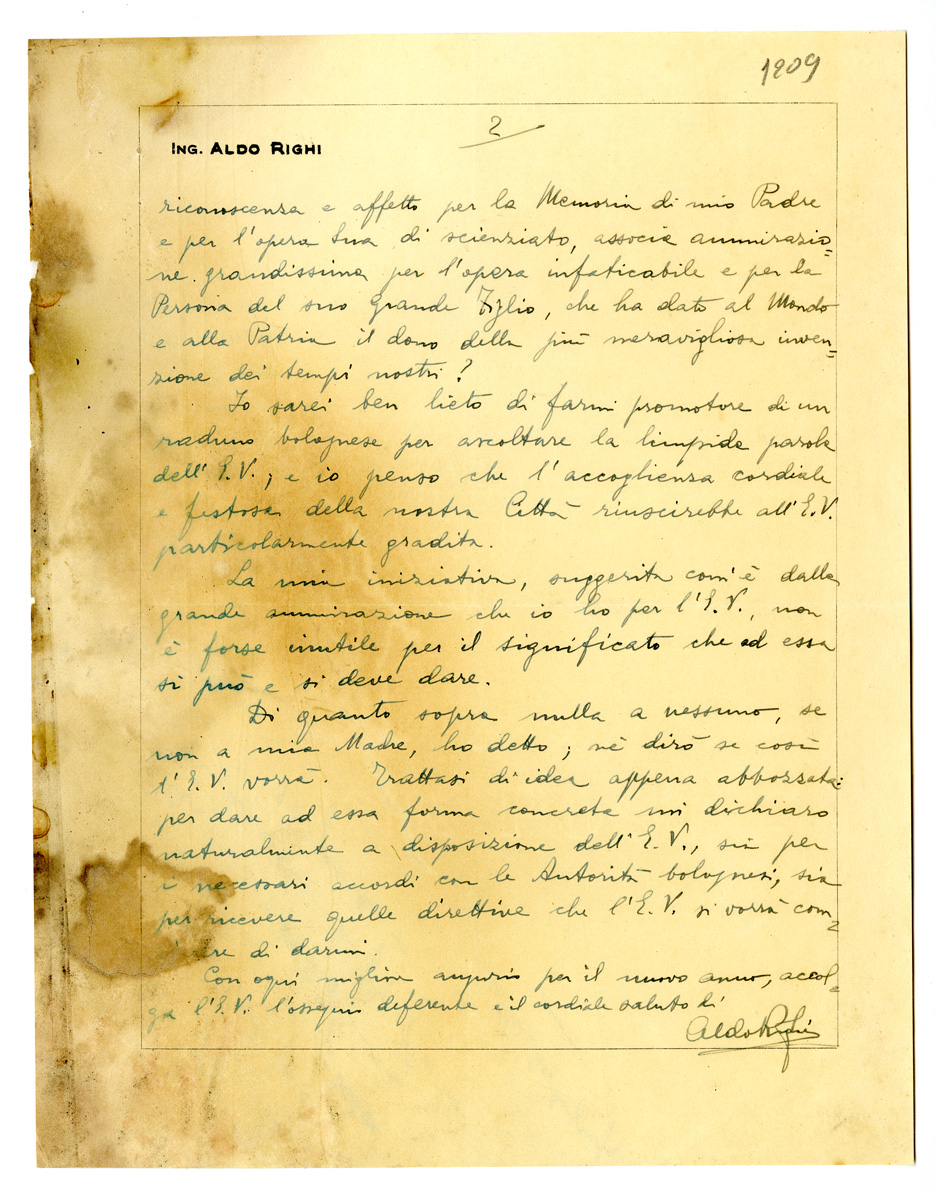 1909
2
ING. ALDO RIGHI
riconoscenza e affetto per la Memoria di mio Padre
e per l'opera Sua di scienziato, associa ammirazio=
ne grandissima per l'opera infaticabile e per la
Persona del suo grande Figlio, che ha dato al Mondo
e alla Patria il dono della più meravigliosa inven=
zione dei tempi nostri?
Io sarei ben lieto di farmi promotore di un
raduno bolognese per ascoltare la limpide parole
dell'E.V.; e io penso che l'accoglienza cordiale
e festosa della nostra Città riuscirebbe all'E.V.
particolarmente gradita.
La mia iniziativa, suggerita com'è dalla
grande ammirazione che io ho per l'E.V., non
è forse inutile per il significato che ad essa
si può e si deve dare.
Di quanto sopra nulla a nessuno, se
non a mia Madre, ho detto; nè dirò se così
l'E.V. vorrà. Trattasi di idea appena abbozzata:
per dare ad essa forma concreta mi dichiaro
naturalmente a disposizione dell'E.V., sia per
i necessari accordi con le Autorità bolognesi, sia
per ricevere quelle direttive che l'E.V. si vorrà com=
re di darmi.
Con ogni miglior augurio per il nuovo anno, accol=
ga l'E.V. l'ossequio deferente e il cordiale saluto di
Aldo Righi